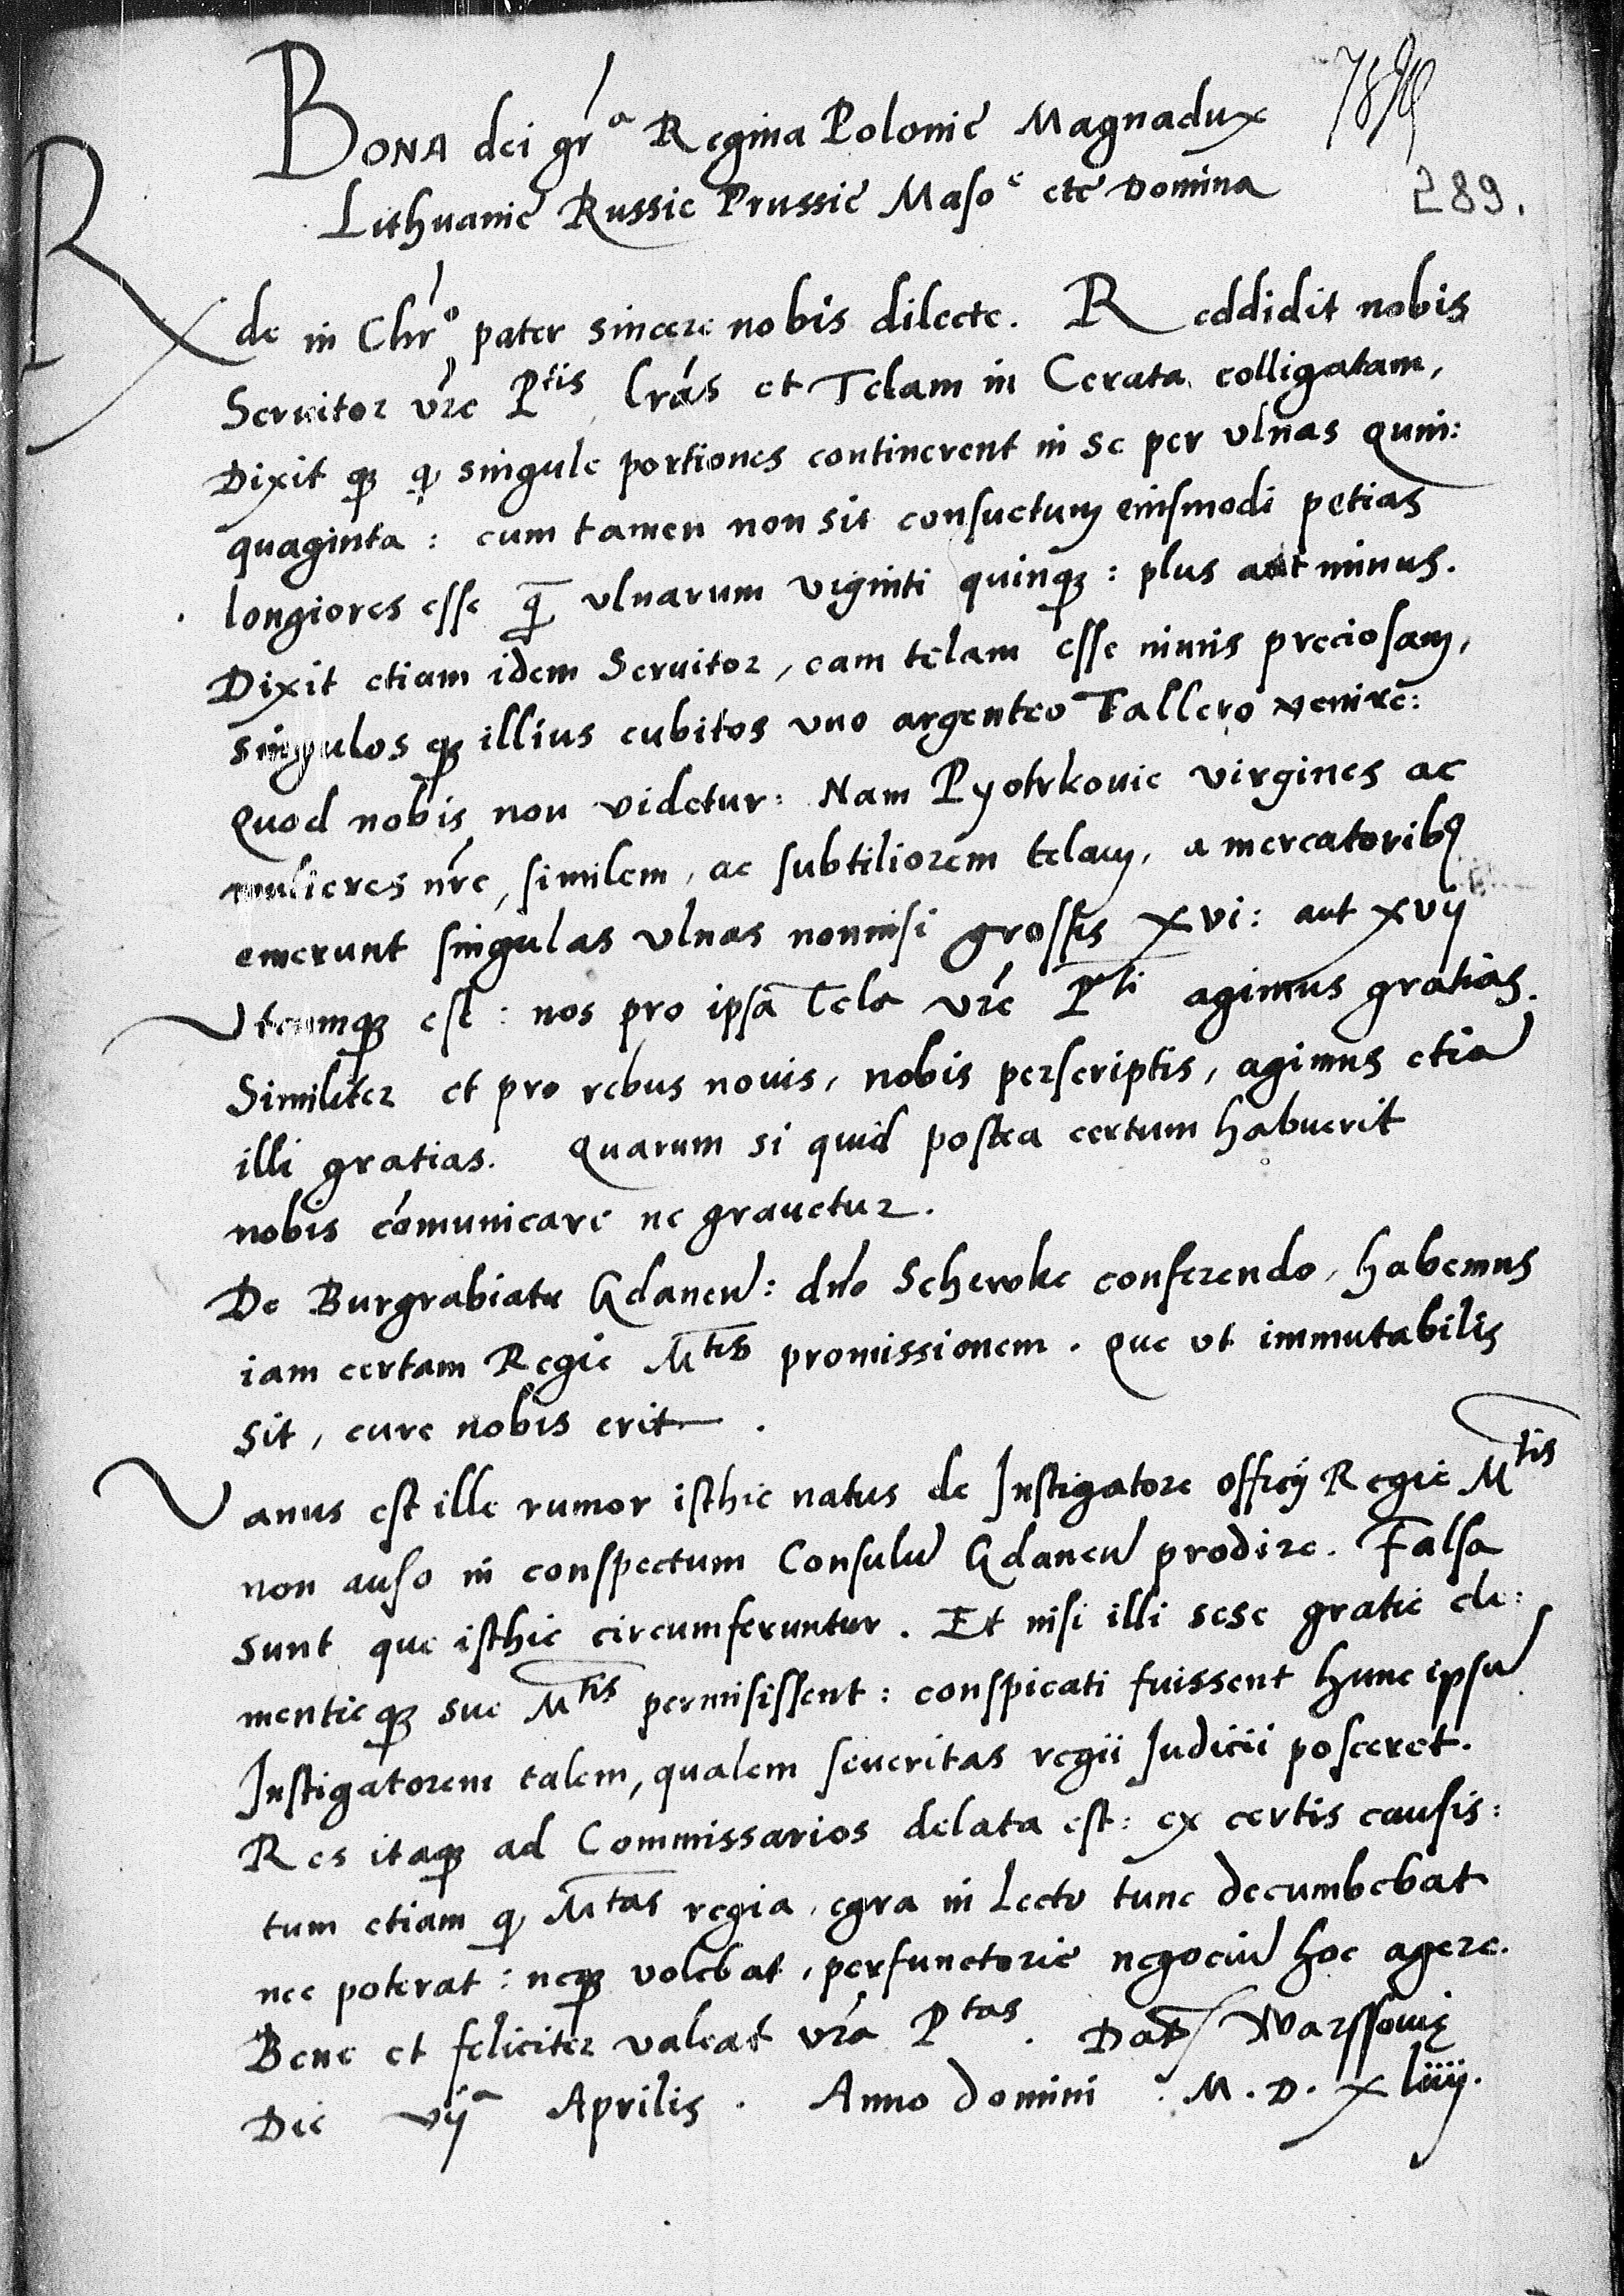 BONA dei grᵃ Regina Polonie Magnadux
289.
Lithuanie Russie Prussie Masoᵉ etc Domina
Rde in Chrᵒ pater sincere nobis dilecte. Reddidit nobis
Servitor vre Pᵗⁱˢ lras et Telam in Cerata colligatam,
Dixit qꝫ ꝙ singule portiones continerent in se per vlnas quin:
quaginta: cum tamen non sit consuetum eiusmodi petias
longiores esse q̃ vlnarum viginti quinqꝫ: plus aut minus.
Dixit etiam idem Servitor, eam telam esse nimis preciosam,
singulos qꝫ illius cubitos vno argenteo Tallero venire:
Quod nobis non videtur: Nam Pyotrkovie virgines ac
mulieres nre, similem, ac subtiliorem telam, a mercatoribꝰ
emerunt singulas vlnas nonnisi grossis xvi: aut xvij
Vtcumqꝫ est: nos pro ipsa Tela vre Pᵗⁱ agimus gratias.
Similiter et pro rebus novis, nobis perscriptis, agimus etiã
illi gratias. Quarum si quid postea certum habuerit
nobis cõmunicare ne gravetur.
De Burgrabiatu Gdaneñ: dno Schewke conferendo, habemus
iam certam Regie Mᵗⁱˢ promissionem. Que vt immutabilis
sit, cure nobis erit.
Vanus est ille rumor isthic natus de Instigatore officij Regie Mᵗⁱˢ
non auso in conspectum Consulũ Gdaneñ prodire. Falsa
sunt que isthic circumferuntur. Et nisi illi sese gratie cle:
mentieqꝫ sue Mᵗⁱˢ permisissent: conspicati fuissent hunc ipsũ
Instigatorem talem, qualem severitas regii Judicii posceret.
Res itaqꝫ ad Commissarios delata est: ex certis causis:
tum etiam ꝙ Mᵗᵃˢ regia, egra in Lecto tunc decumbebat
nec poterat: neqꝫ volebat, perfunctorie negociũ hoc agere.
Bene et feliciter valeat vra Pᵗᵃˢ. Dat Warssovię
Die vijᵃ Aprilis. Anno domini M.D.xliiij.